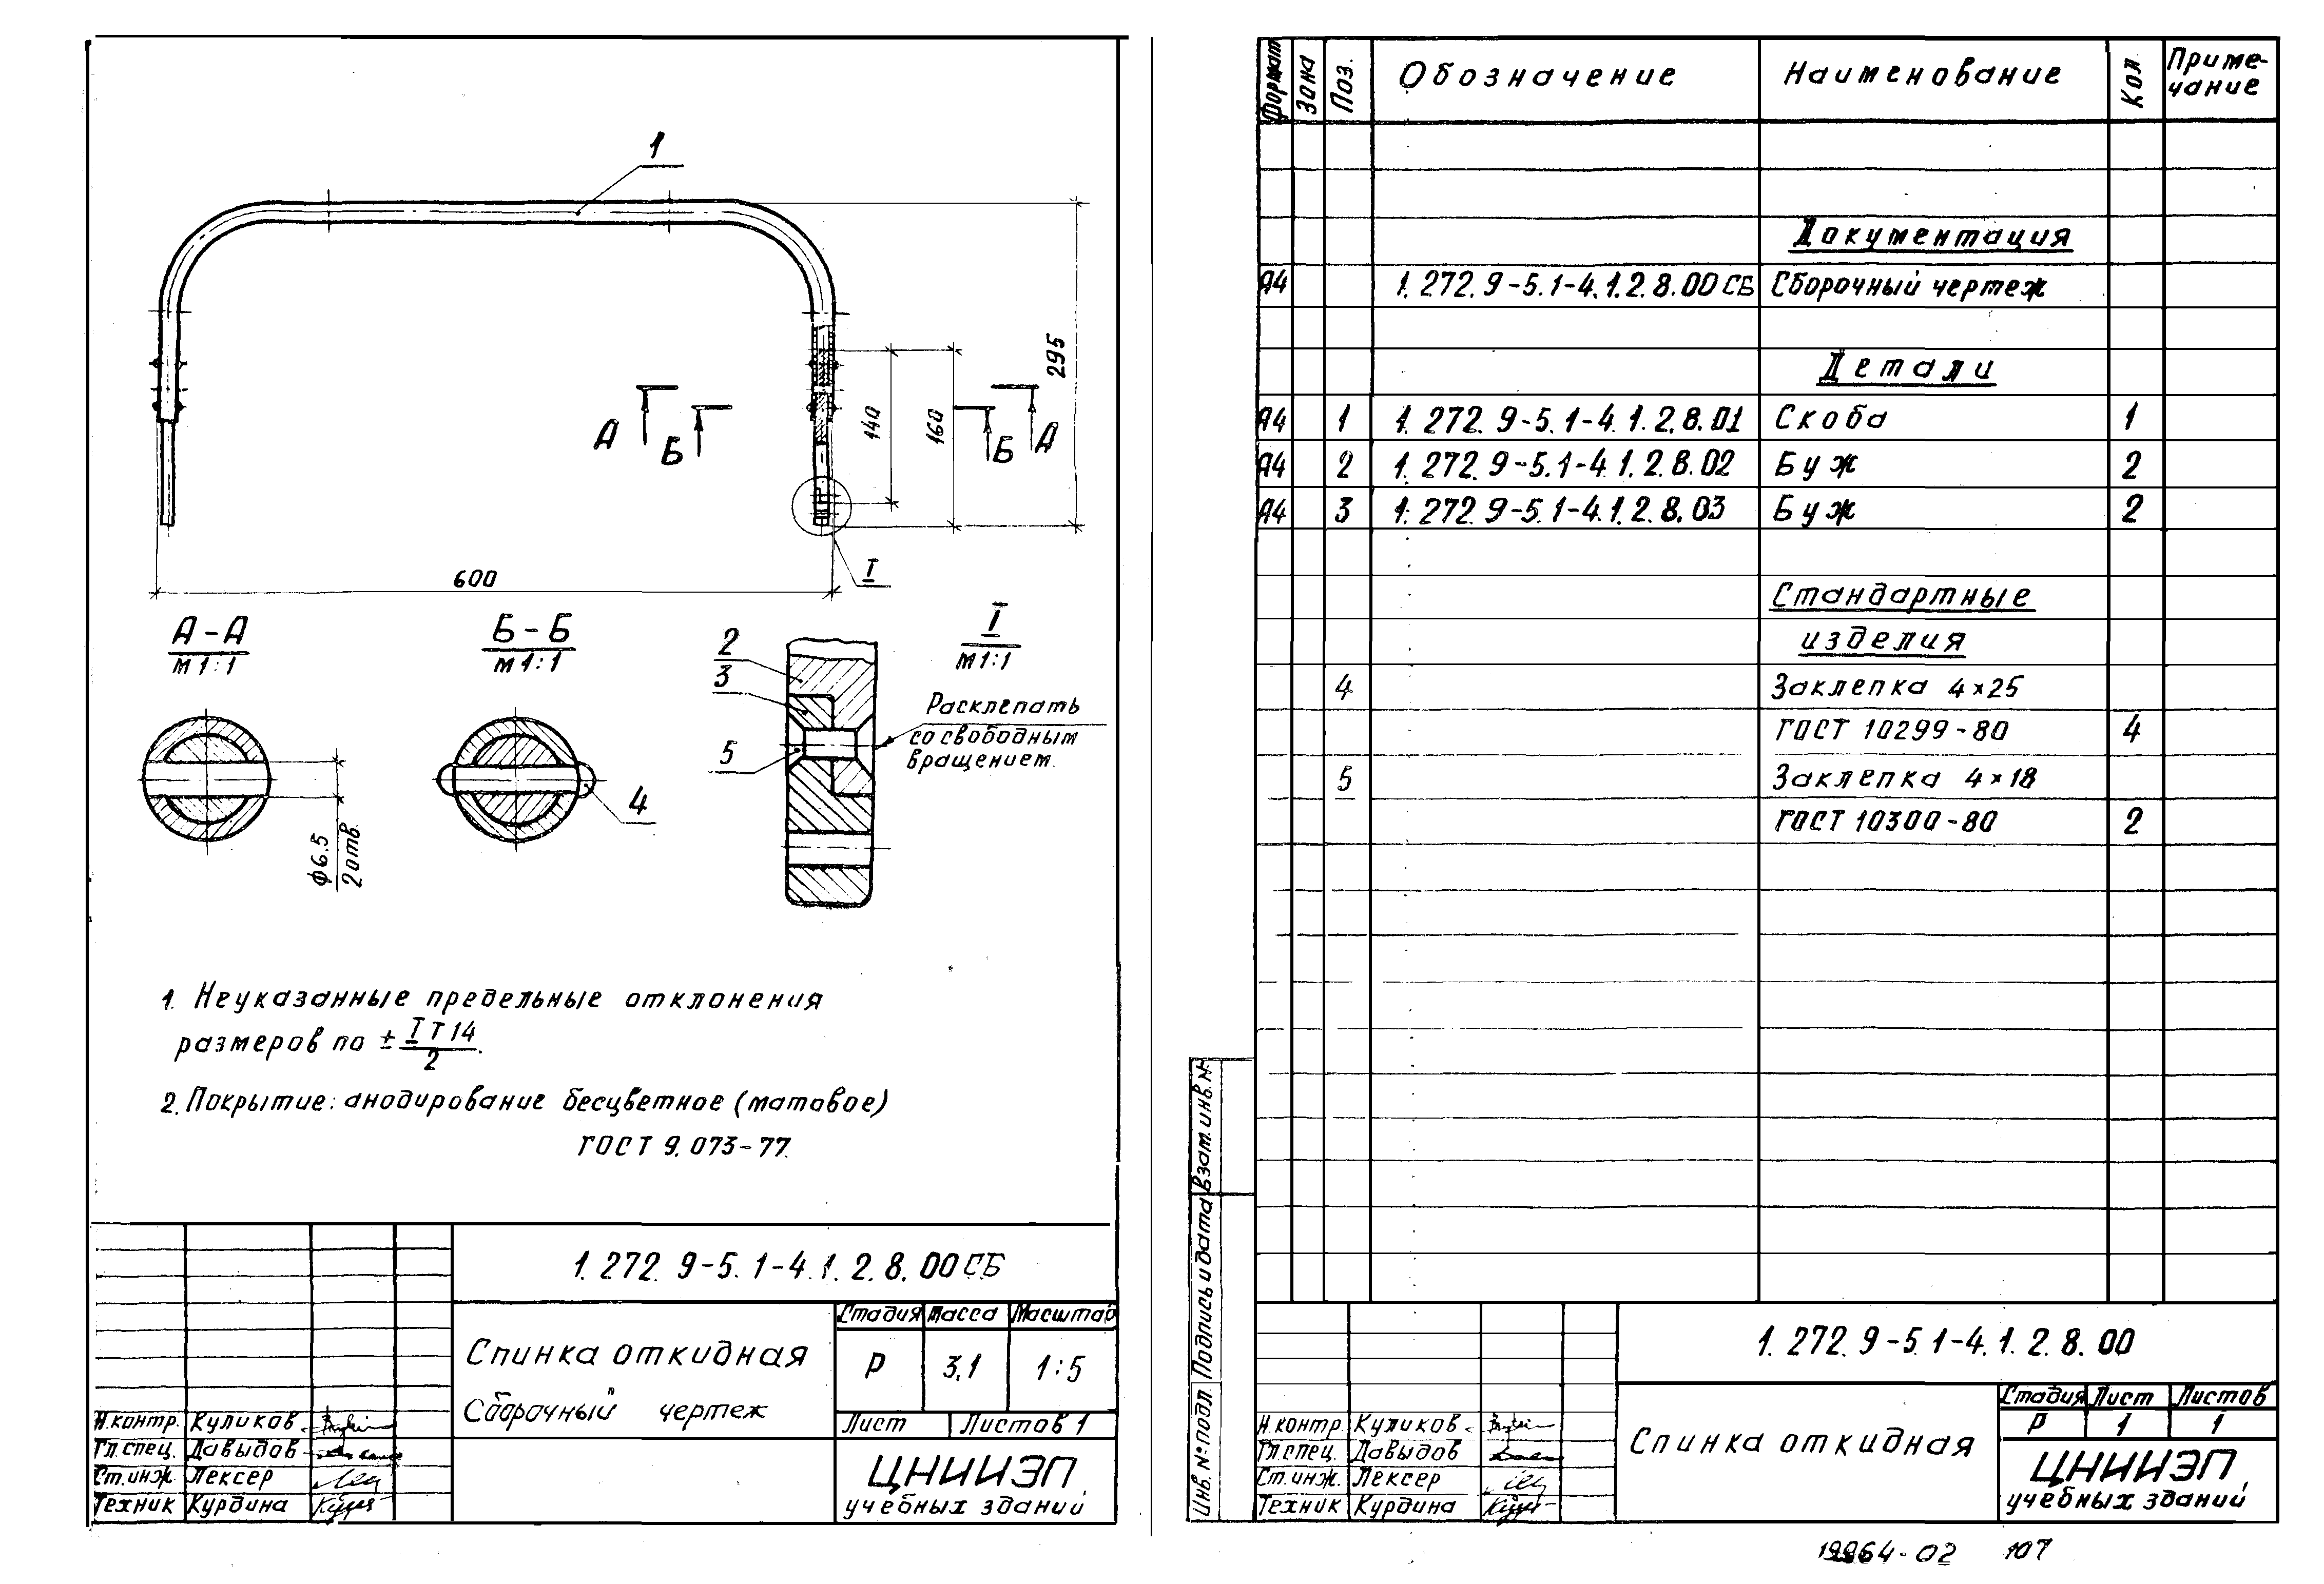 1
295
140
160
А
Б
Б
А
I
600
А-А
м 1:1
Б-Б
м 1:1
I
м 1:1
2
3
5
Расклепать
со свободным
вращением.
4
ф6.5
2 отв.
1. Неуказанные предельные отклонения
размеров по ± IT14/2.
2. Покрытие: анодирование бесцветное (матовое)
ГОСТ 9.073-77.
1.272.9-5.1-4.1.2.8.00 СБ
Спинка откидная
Сборочный чертеж
Стадия Масса Масштаб
Р 3,1 1:5
Лист Листов 1
ЦНИИЭП
учебных зданий
Н.контр. Куликов
Гл.спец. Давыдов
Ст.инж. Лексер
Техник Курдина
Формат Зона Поз. Обозначение Наименование Кол. Приме-
чание
Документация
А4 1.272.9-5.1-4.1.2.8.00 СБ Сборочный чертеж
Детали
А4 1 1.272.9-5.1-4.1.2.8.01 Скоба 1
А4 2 1.272.9-5.1-4.1.2.8.02 Буж 2
А4 3 1.272.9-5.1-4.1.2.8.03 Буж 2
Стандартные
изделия
4 Заклепка 4×25
ГОСТ 10299-80 4
5 Заклепка 4×18
ГОСТ 10300-80 2
Взам. инв. №
Подпись и дата
Инв. № подл.
1.272.9-5.1-4.1.2.8.00
Спинка откидная
Стадия Лист Листов
Р 1 1
ЦНИИЭП
учебных зданий
Н.контр. Куликов
Гл.спец. Давыдов
Ст.инж. Лексер
Техник Курдина
19964-02 107